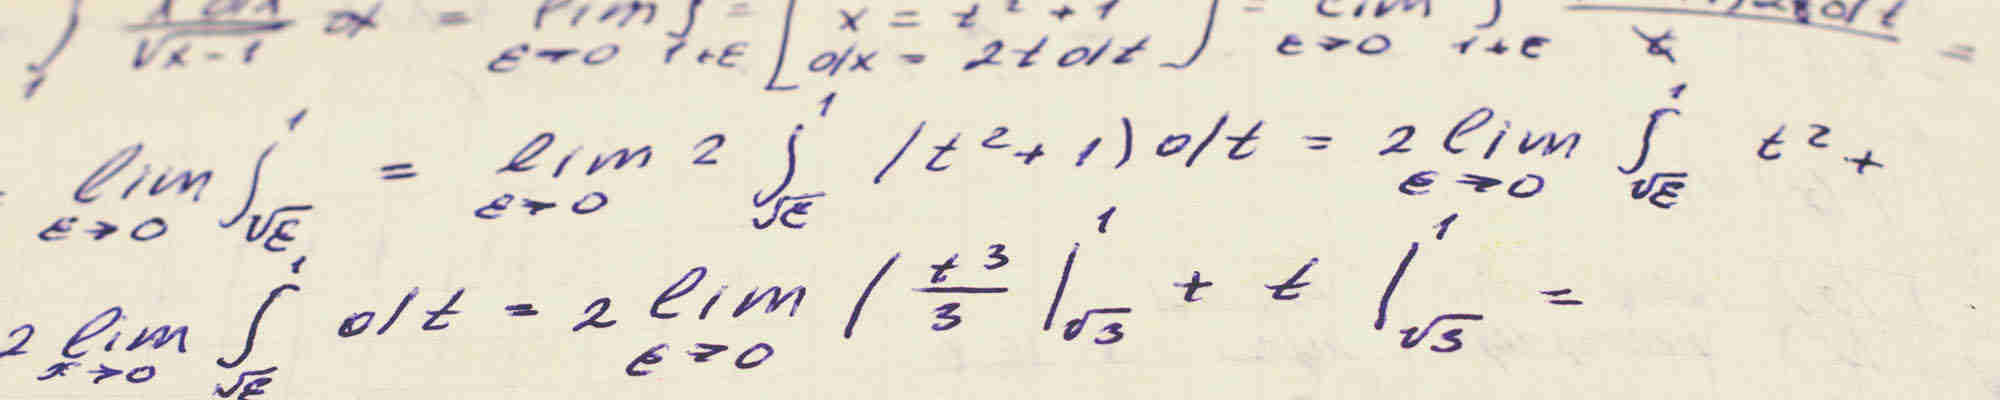 ∫₁ x dx / √x-1 dx = lim ε→0 ∫ 1+ε = [ x = t² + 1 dx = 2t dt ] = lim ε→0 ∫ 1+ε dt / t =
lim ε→0 ∫√ε ¹ = lim ε→0 2 ∫√ε ¹ (t² + 1) dt = 2 lim ε→0 ∫√ε ¹ t² +
2 lim x→0 ∫√ε ¹ dt = 2 lim ε→0 ( t³/3 |√3 ¹ + t |√3 ¹ =